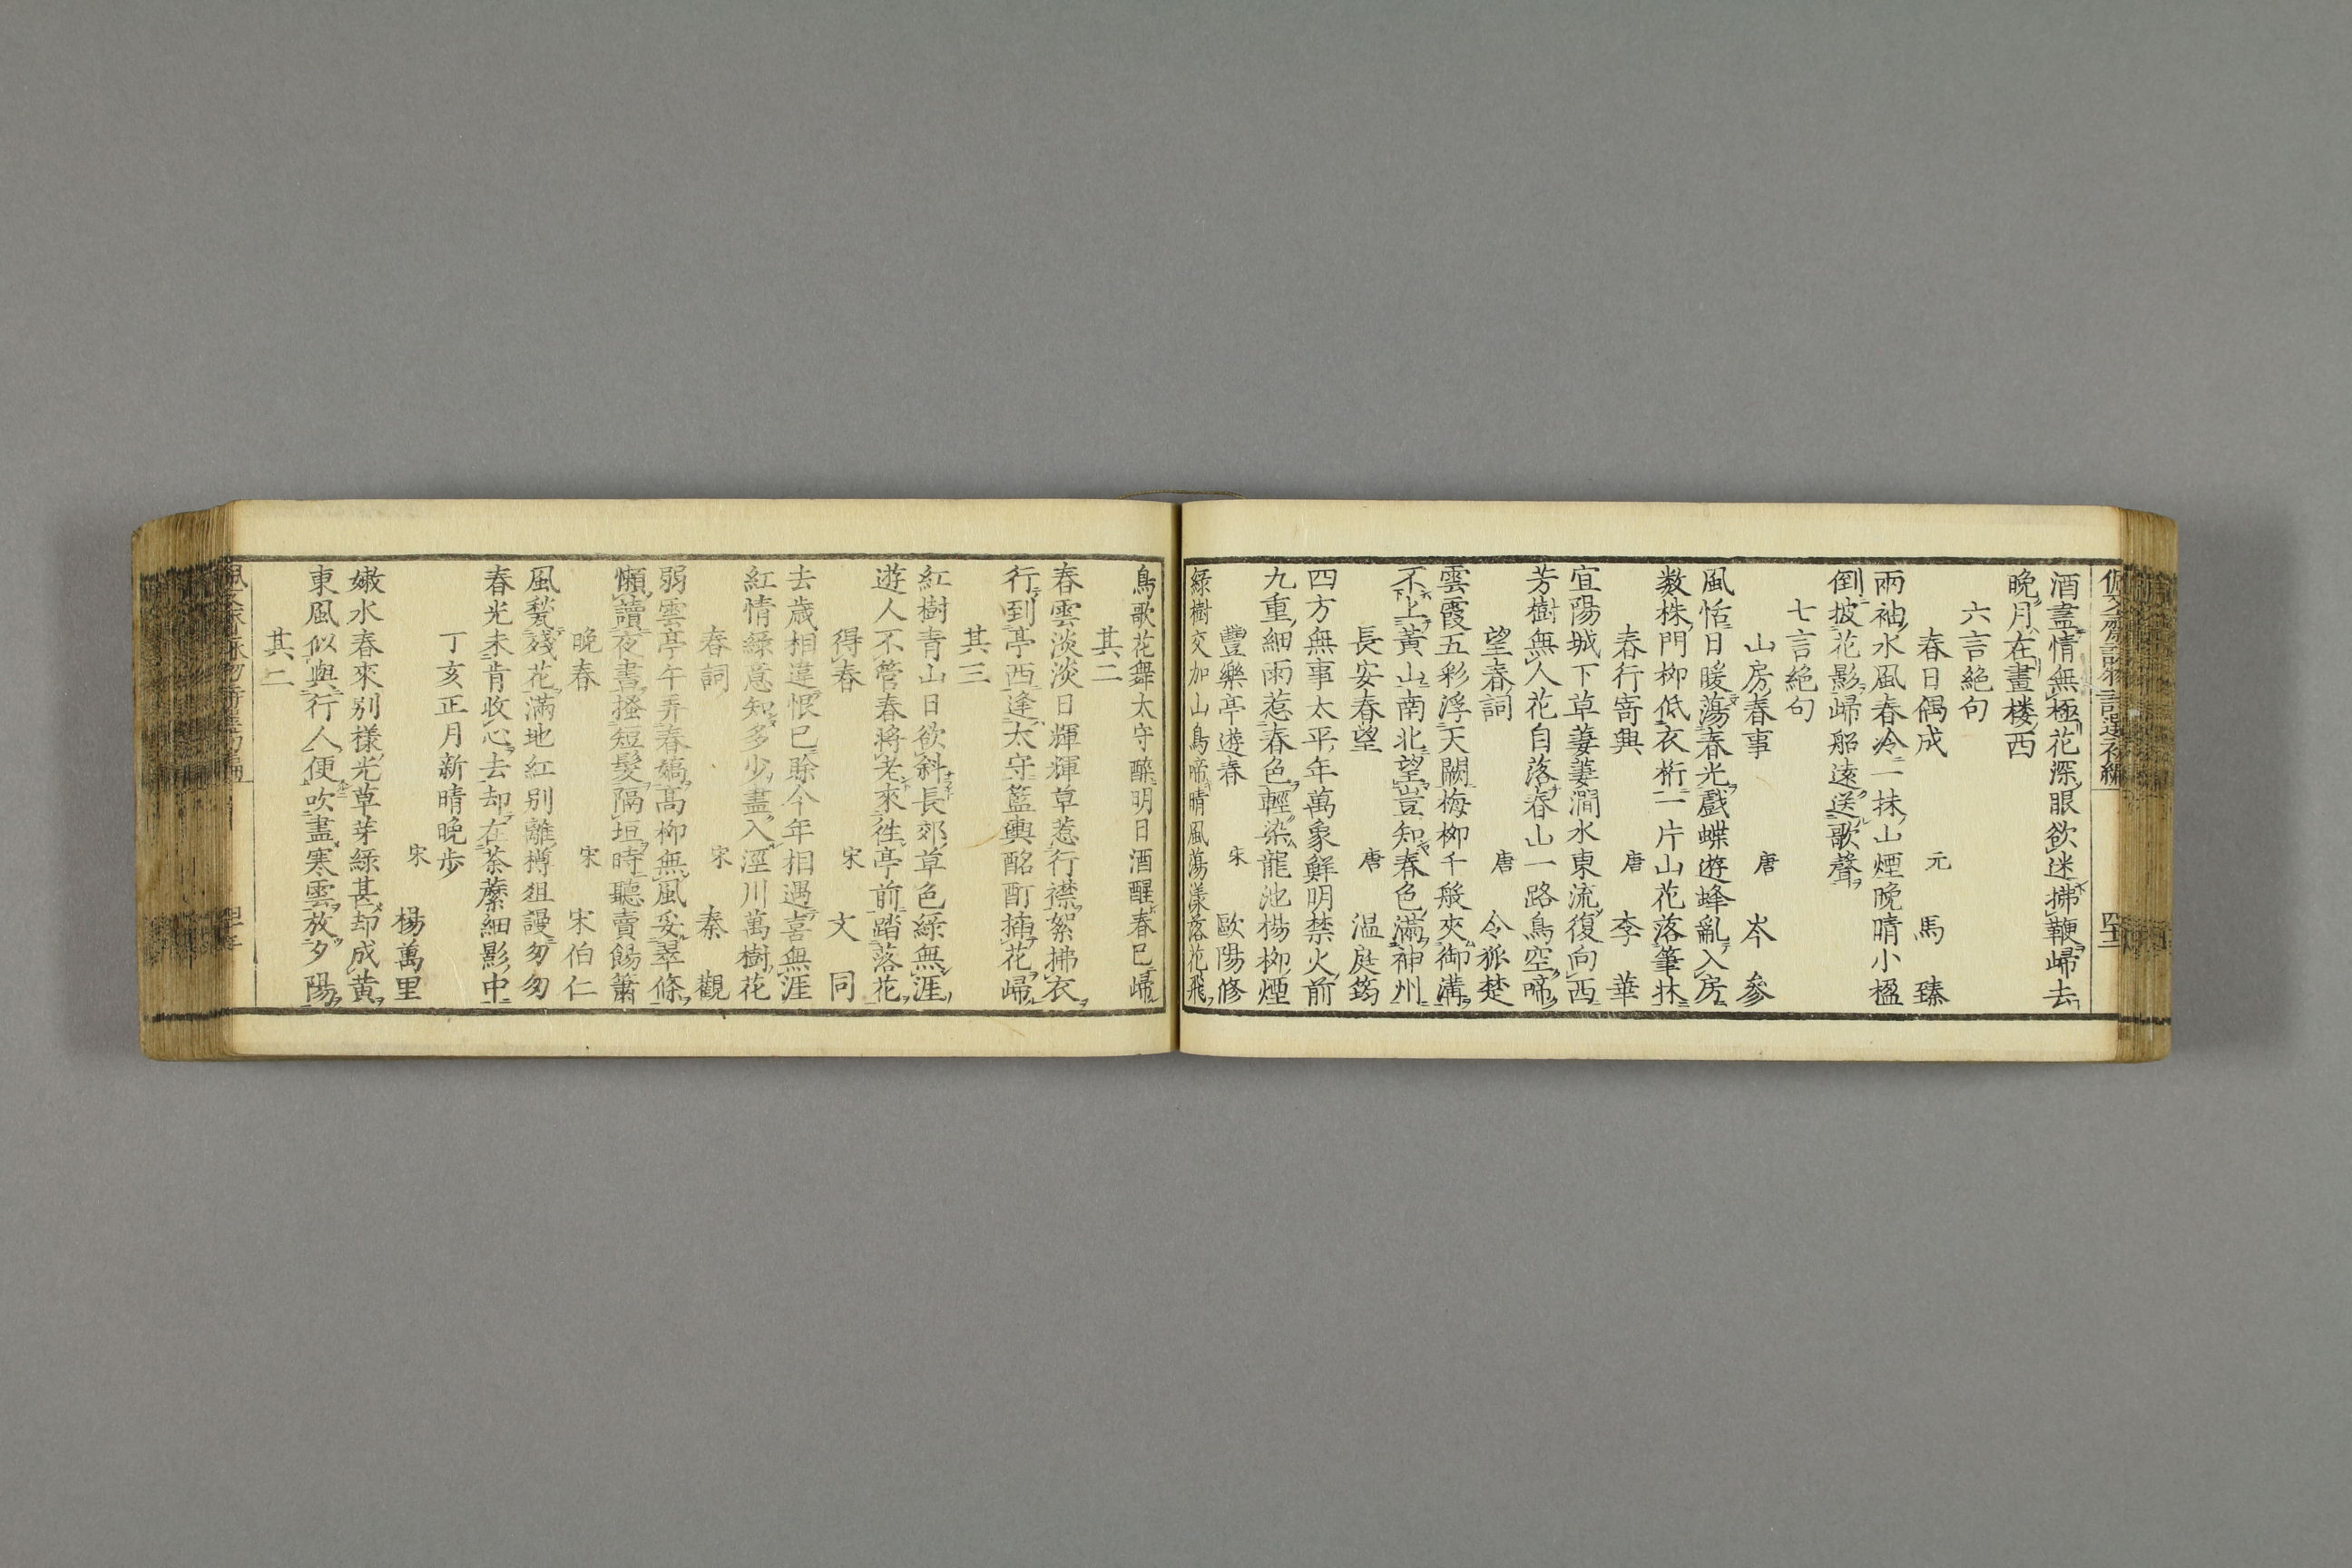 酒盡情無極花深眼欲迷拂鞭歸去
晩月在畫楼西
六言絶句
春日偶成 元 馬臻
兩袖水風春冷一抹山煙晩晴小楹
倒披花影歸船遠送歌聲
七言絶句
山房春事 唐 岑參
風恬日暖蕩春光戲蝶遊蜂亂入房
数株門柳低衣桁一片山花落筆牀
春行寄興 唐 李華
宜陽城下草萋萋澗水東流復向西
芳樹無人花自落春山一路鳥空啼
望春詞 唐 令狐楚
雲霞五彩浮天闕梅柳千般夾御溝
不上黃山南北望豈知春色滿神州
長安春望 唐 温庭筠
四方無事太平年萬象鮮明禁火前
九重細雨惹春色輕染龍池楊柳煙
豐樂亭遊春 宋 歐陽修
綠樹交加山鳥啼晴風蕩漾落花飛
鳥歌花舞太守醉明日酒醒春已歸
其二
春雲淡淡日輝輝草惹行襟絮拂衣
行到亭西逢太守籃輿酩酊插花歸
其三
紅樹青山日欲斜長郊草色綠無涯
遊人不管春將老來徃亭前踏落花
得春 宋 文同
去歲相違恨已賒今年相遇喜無涯
紅情綠意知多少盡入涇川萬樹花
春詞 宋 秦觀
弱雲亭午弄春嬌高柳無風妥翠條
懶讀夜書搔短髮隔垣時聽賣餳簫
晩春 宋 宋伯仁
風甃殘花滿地紅别離樽俎謾匆匆
春光未肯收心去却在荼蘼細影中
丁亥正月新晴晩歩
宋 楊萬里
嫩水春來别樣光草芽綠甚却成黄
東風似與行人便吹盡寒雲放夕陽
其二